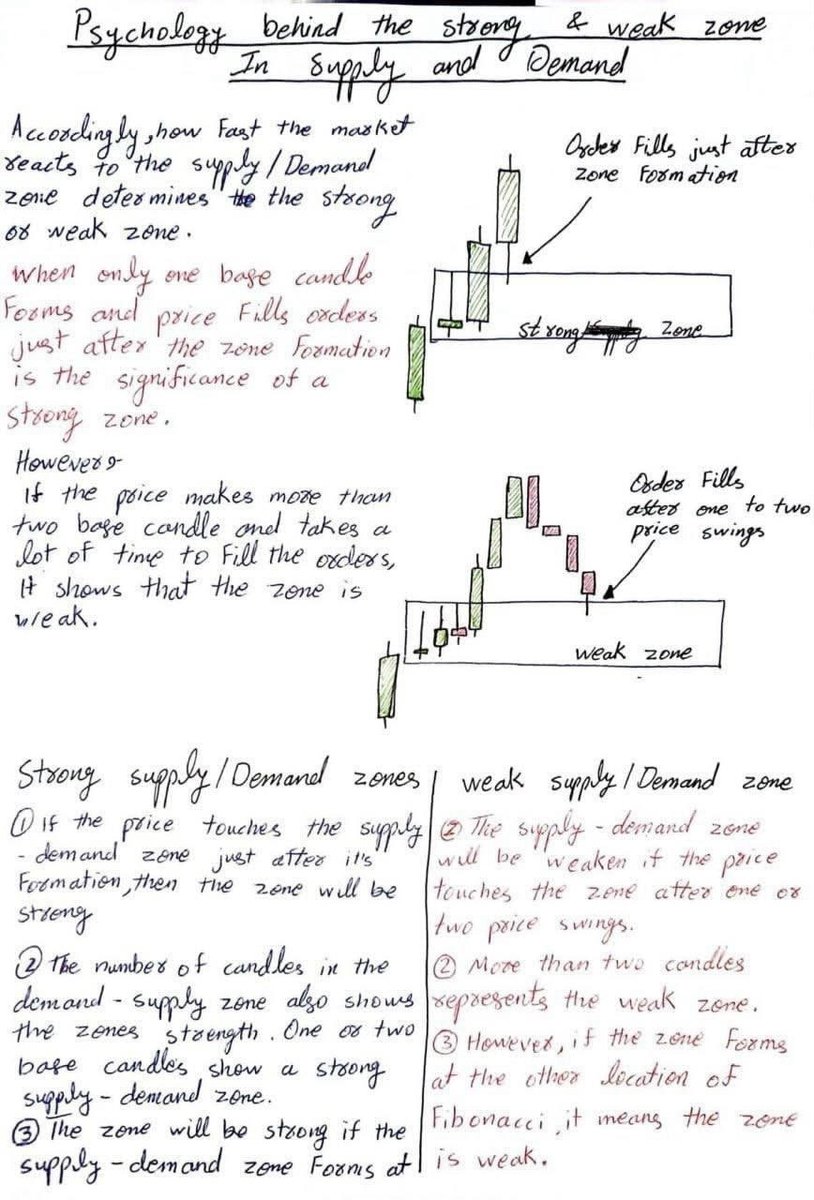 Psychology behind the strong & weak zone
In Supply and Demand
Accordingly, how Fast the market
reacts to the supply/Demand
zone determines the the strong
or weak zone.
When only one base candle
Forms and price Fills orders
just after the zone Formation
is the significance of a
Strong zone.
Order Fills just after
zone Formation
Strong zone
However,
If the price makes more than
two base candle and takes a
lot of time to Fill the orders,
It shows that the zone is
weak.
Order Fills
after one to two
price swings
weak zone
Strong supply/Demand zones
① If the price touches the supply
- demand zone just after it's
Formation, then the zone will be
strong
② The number of candles in the
demand - supply zone also shows
the zones strength. One or two
base candles show a strong
supply - demand zone.
③ The zone will be strong if the
supply - demand zone Forms at
weak supply/Demand zone
② The supply - demand zone
will be weaken if the price
touches the zone after one or
two price swings.
② More than two candles
represents the weak zone.
③ However, if the zone Forms
at the other location of
Fibonacci, it means the zone
is weak.